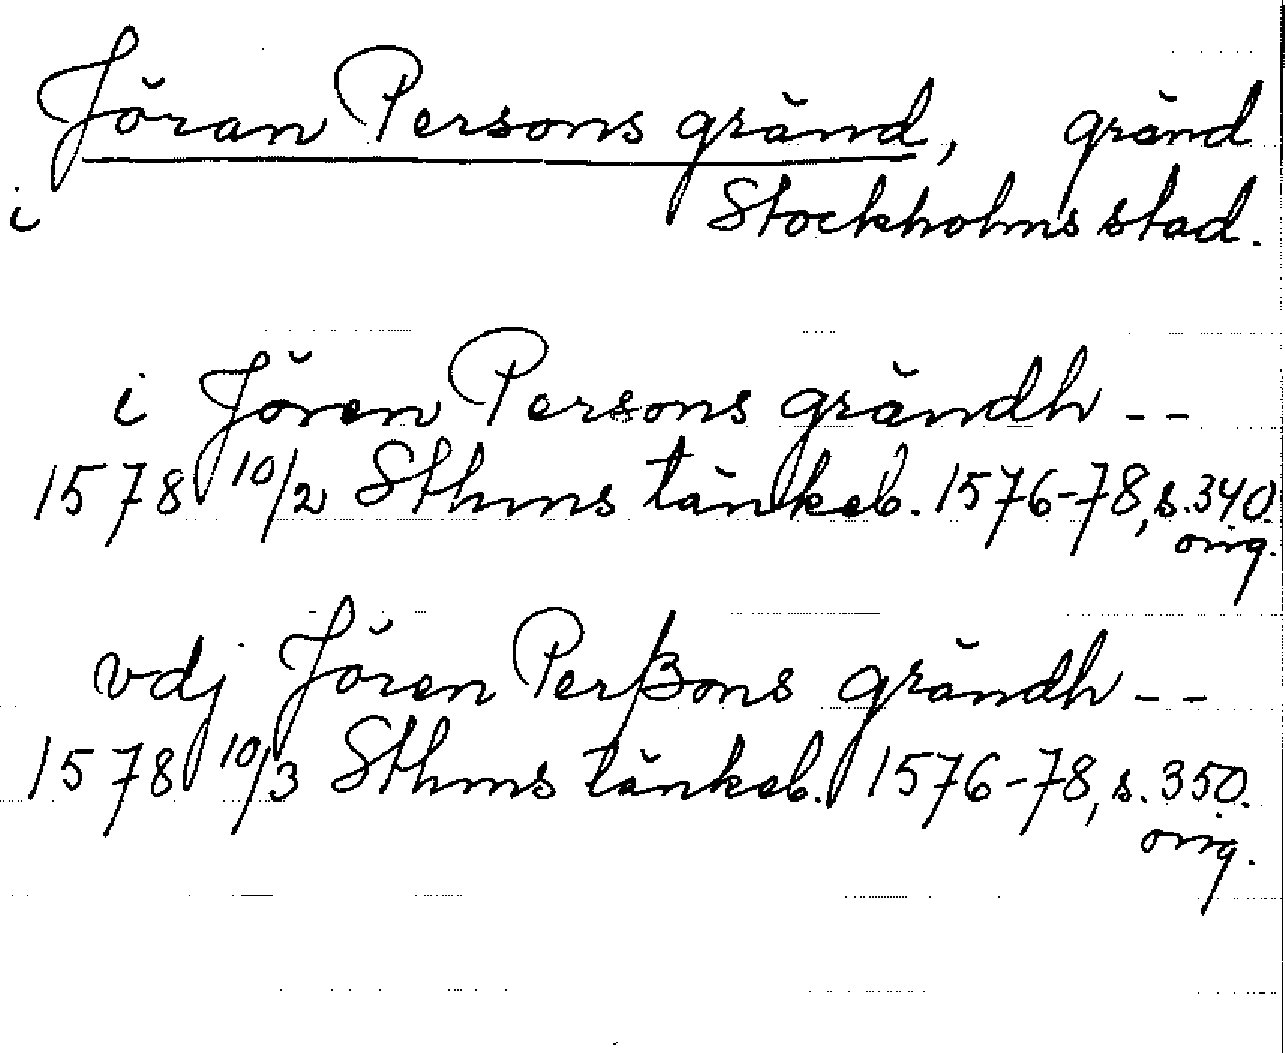 Jöran Persons gränd, gränd
i Stockholms stad.
i Jören Persons grändh --
1578 10/2 Sthms tänkeb. 1576-78, s. 340.
orig.
vdj Jören Perßons grändh --
1578 10/3 Sthms tänkeb. 1576-78, s. 350.
orig.